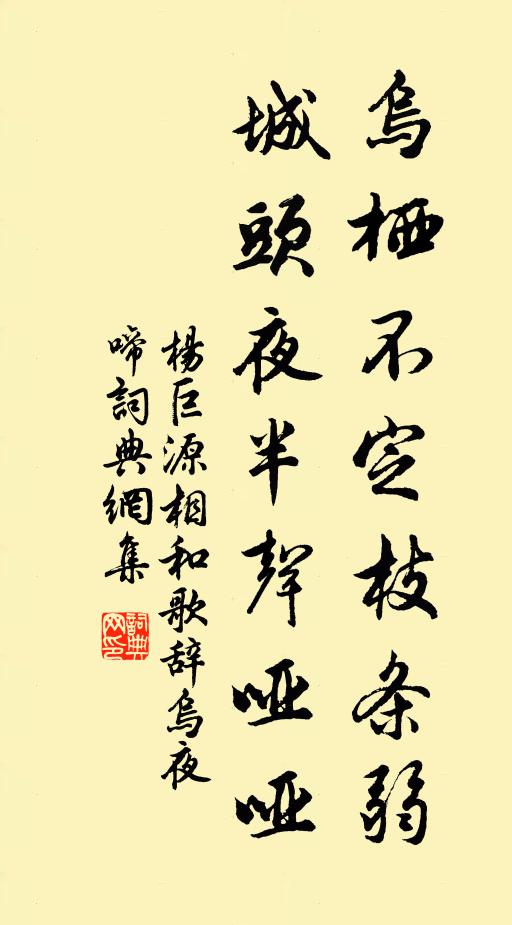 烏栖不定枝条弱
城頭夜半聲哑哑
楊巨源相和歌辞烏夜
啼詞典網集
詞典
网印